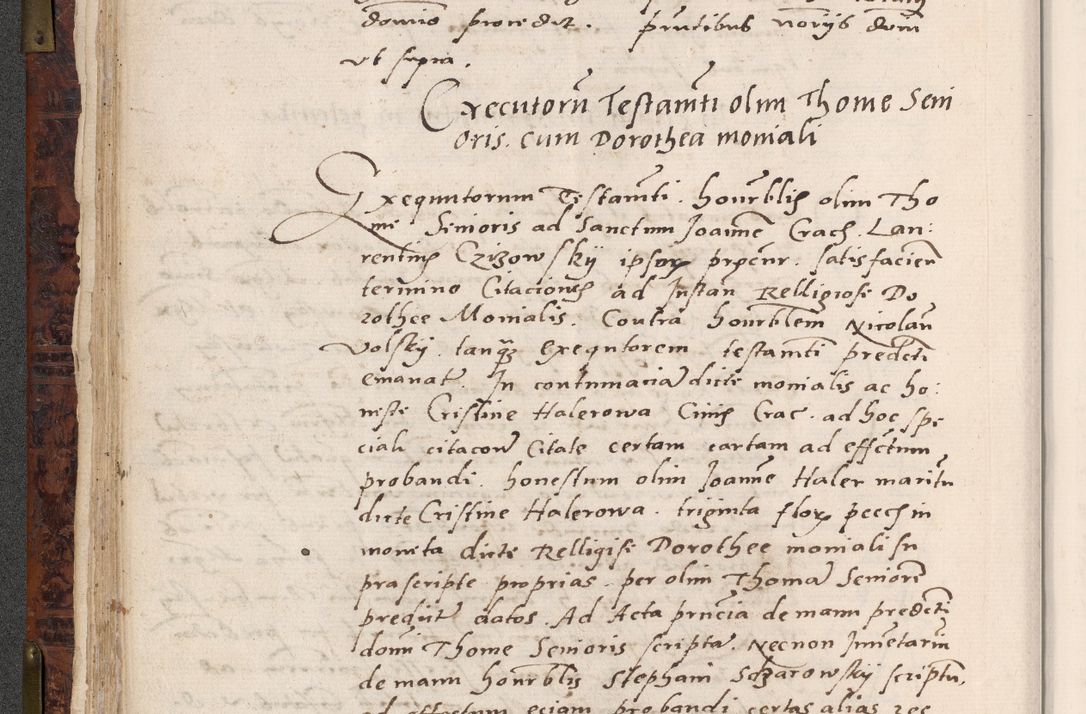 domino procedit. pñtibus noriis dom
ut supra.
Executorũ Testamti olim Thome Seni
oris. cum Dorothea moniali
Exequutorum Testamti. honrblis olim Tho
mi Senioris ad Sanctum Joannem Crac. Lau:
rentius Czizowsky ipsorx procur. satisfaciens
termino Citacionis ad Instan Relligiose Do
rothee Monialis. Contra honrblem Nicolau
Volsky. tanqz Exequtorem testamti predcti
emanat. In contumacia dicte monialis ac ho:
neste Cristine Halerowa Civis Crac. ad hoc spe
ciali citacone Citate certam cartam ad effectum
probandi. honestum olim Joanne Haler maritu
dicte Cristine Halerowa. triginta florx pecch in
moneta dicte Relligise Dorothee moniali su
pra scripte proprias. per olim Thoma Seniore
predcit datos. Ad Acta pñcia de manu predcti
domi Thome Senioris scripta. Necnon Inventariu
de manu honrblis Stephani Sdzarowsky scriptu,
ad effectum eciam probandi certas alias rec